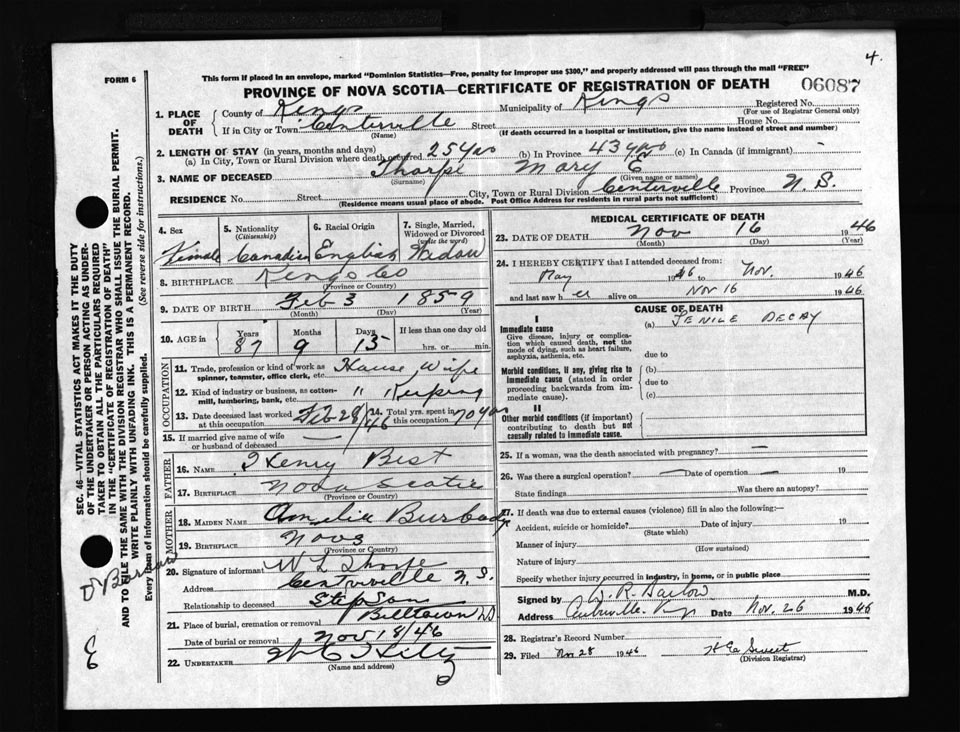 4.
This form if placed in an envelope, marked "Dominion Statistics—Free, penalty for improper use $300," and properly addressed will pass through the mail "FREE"
FORM 6
PROVINCE OF NOVA SCOTIA—CERTIFICATE OF REGISTRATION OF DEATH 06087
1. PLACE OF DEATH { County of Kings Municipality of Kings Registered No.
(For use of Registrar General only)
If in City or Town Centerville Street House No.
(Name) (If death occurred in a hospital or institution, give the name instead of street and number)
2. LENGTH OF STAY (in years, months and days)
(a) In City, Town or Rural Division where death occurred 25 yrs (b) In Province 43 yrs (c) In Canada (if immigrant) -
3. NAME OF DECEASED Thorpe Mary E
(Surname) (Given name or names)
RESIDENCE No. Street City, Town or Rural Division Centerville Province N. S.
(Residence means usual place of abode. Post Office Address for residents in rural parts not sufficient)
4. Sex 5. Nationality (Citizenship) 6. Racial Origin 7. Single, Married, Widowed or Divorced (write the word)
Female Canadian English Widow
8. BIRTHPLACE Kings Co
(Province or Country)
9. DATE OF BIRTH Feb 3 1859
(Month) (Day) (Year)
10. AGE in Years Months Days If less than one day old
87 9 13 hrs. or min.
OCCUPATION
11. Trade, profession or kind of work as spinner, teamster, office clerk, etc. House Wife
12. Kind of industry or business, as cotton-mill, lumbering, bank, etc. " Keeping
13. Date deceased last worked at this occupation Feb 28/46 14. Total yrs. spent in this occupation 70 yrs
15. If married give name of wife or husband of deceased —
FATHER
16. NAME Henry Best
17. BIRTHPLACE Nova Scotia
(Province or Country)
MOTHER
18. MAIDEN NAME Amelia
19. BIRTHPLACE Nova
(Province or Country)
20. Signature of informant W L Thorpe
Address Centerville N. S.
Relationship to deceased Step Son
21. Place of burial, cremation or removal Billtown
Date of burial or removal Nov 18/46
22. UNDERTAKER W C Hiltz
(Name and address)
MEDICAL CERTIFICATE OF DEATH
23. DATE OF DEATH Nov 16 1946
(Month) (Day) (Year)
24. I HEREBY CERTIFY that I attended deceased from:
May 1946 to Nov. 1946
and last saw her alive on Nov 16 1946.
CAUSE OF DEATH
I
Immediate cause (a) SENILE DECAY
Give disease, injury or complication which caused death, not the mode of dying, such as heart failure, asphyxia, asthenia, etc.
due to
Morbid conditions, if any, giving rise to immediate cause (stated in order proceeding backwards from immediate cause). (b)
due to
(c)
II
Other morbid conditions (if important) contributing to death but not causally related to immediate cause.
25. If a woman, was the death associated with pregnancy? —
26. Was there a surgical operation? — Date of operation — 19
State findings Was there an autopsy?
27. If death was due to external causes (violence) fill in also the following:—
Accident, suicide or homicide? Date of injury 19
(State which)
Manner of injury
(How sustained)
Nature of injury
Specify whether injury occurred in industry, in home, or in public place
Signed by Barlow M.D.
Address Centreville. Date Nov. 26 1946
28. Registrar's Record Number
29. Filed Nov 28 1946 Sweet
(Division Registrar)
SEC. 46—VITAL STATISTICS ACT MAKES IT THE DUTY
OF THE UNDERTAKER OR PERSON ACTING AS UNDER-
TAKER TO OBTAIN ALL THE PARTICULARS REQUIRED
IN THE "CERTIFICATE OF REGISTRATION OF DEATH"
AND TO FILE THE SAME WITH THE DIVISION REGISTRAR WHO SHALL ISSUE THE BURIAL PERMIT.
WRITE PLAINLY WITH UNFADING INK. THIS IS A PERMANENT RECORD.
Every item of information should be carefully supplied. (See reverse side for instructions.)